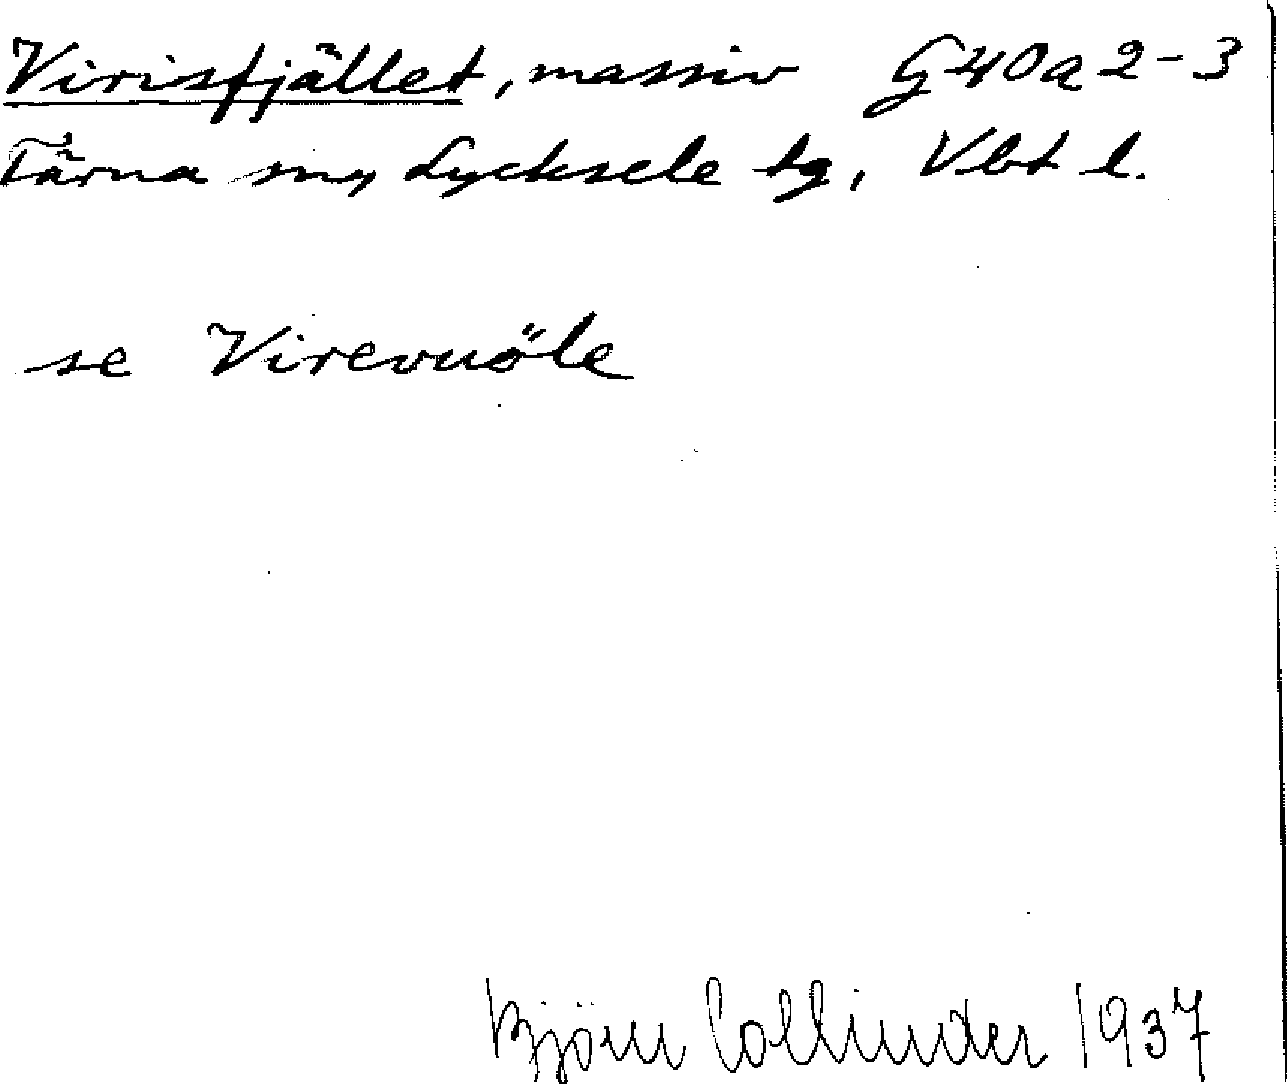 Virisfjället, massiv G40a2-3
Tärna sn, Lycksele tg, Vbt l.
se Virevuöle
Björn Collinder 1937